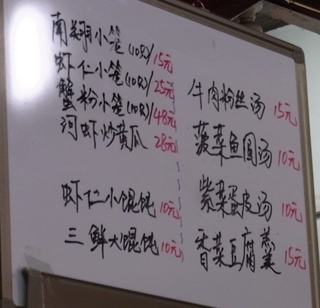 南翔小笼(10只)/15元
虾仁小笼(10只)/25元
蟹粉小笼(10只)/48元
河虾炒黄瓜 28元
虾仁小馄饨 10元
三鲜大馄饨 10元
牛肉粉丝汤 15元
菠菜鱼圆汤 10元
紫菜蛋皮汤 10元
香菜豆腐羹 15元